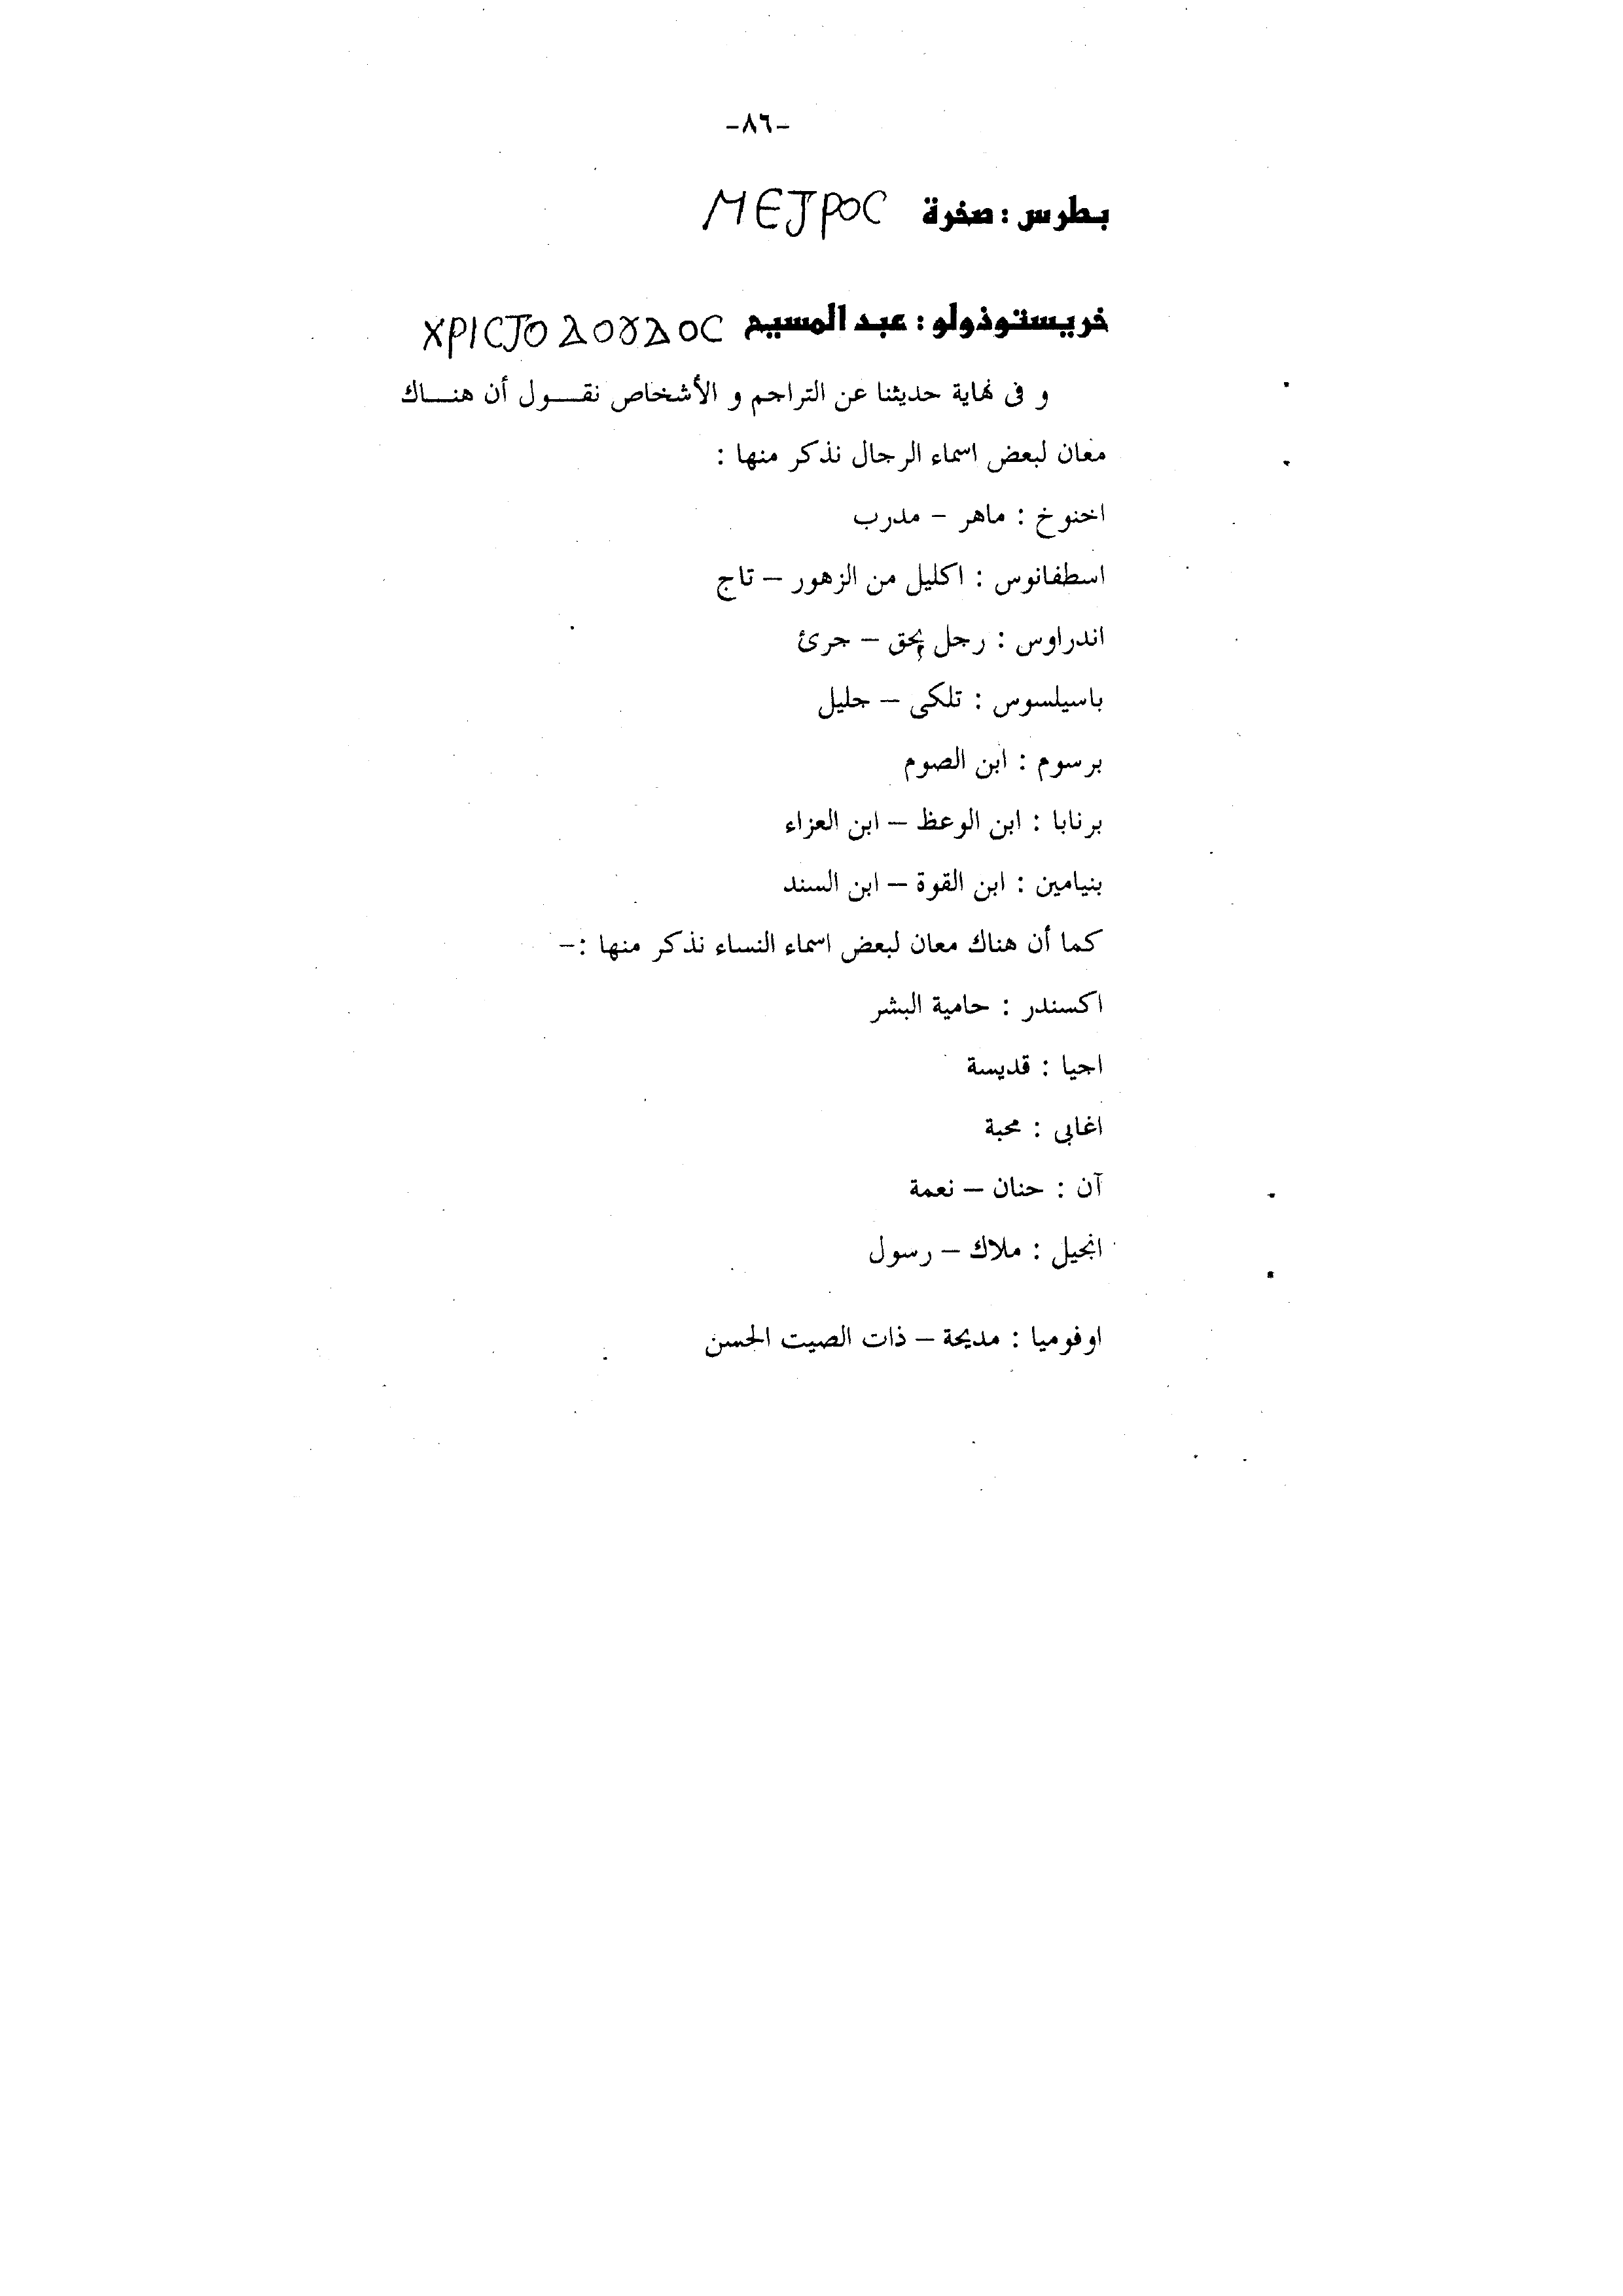 -٨٦-
بطرس : صخرة ΠЄΤΡΟС
خريستوذولو : عبد المسيح ΧΡΙСΤΟΔΟΥΛΟС
و فى نهاية حديثنا عن التراجم و الأشخاص نقول أن هناك
معان لبعض اسماء الرجال نذكر منها :
اخنوخ : ماهر – مدرب
اسطفانوس : اكليل من الزهور – تاج
اندراوس : رجل بحق – جرئ
باسيلسوس : تلكى – جليل
برسوم : ابن الصوم
برنابا : ابن الوعظ – ابن العزاء
بنيامين : ابن القوة – ابن السند
كما أن هناك معان لبعض اسماء النساء نذكر منها :–
اكسندر : حامية البشر
اجيا : قديسة
اغابى : محبة
آن : حنان – نعمة
انجيل : ملاك – رسول
اوفوميا : مديحة – ذات الصيت الحسن